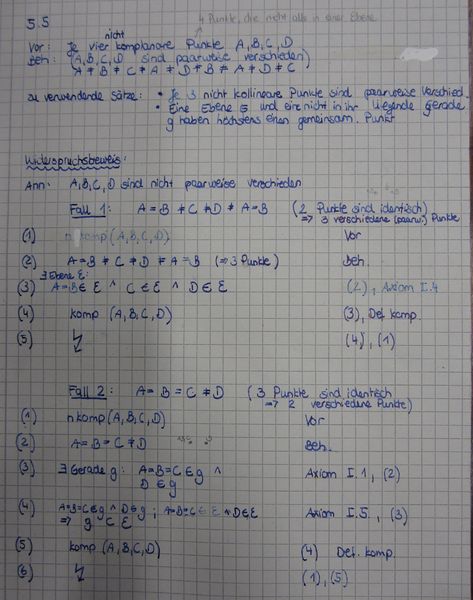 5.5
4 Punkte, die nicht alle in einer Ebene
nicht
Vor: Je vier komplanare Punkte A,B,C,D
Beh: (A,B,C,D sind paarweise verschieden)
A ≠ B ≠ C ≠ A ≠ D ≠ B ≠ A ≠ D ≠ C
zu verwendende Sätze: • Je 3 nicht kollineare Punkte sind paarweise verschied.
• Eine Ebene E und eine nicht in ihr liegende Gerade
g haben höchstens einen gemeinsam. Punkt
Widerspruchsbeweis:
Ann: A,B,C,D sind nicht paarweise verschieden
Fall 1: A = B ≠ C ≠ D ≠ A = B (2 Punkte sind identisch)
⇒ 3 verschiedene (paarw.) Punkte
(1) nkomp (A,B,C,D) Vor
(2) A = B ≠ C ≠ D ≠ A = B (⇒ 3 Punkte) Beh.
∃ Ebene E:
(3) A = B ∈ E ∧ C ∈ E ∧ D ∈ E (2), Axiom I.4
(4) komp (A,B,C,D) (3), Def. komp.
(5) ↯ (4), (1)
Fall 2: A = B = C ≠ D (3 Punkte sind identisch
⇒ 2 verschiedene Punkte)
(1) nkomp (A,B,C,D) Vor
(2) A = B = C ≠ D Beh.
(3) ∃ Gerade g: A = B = C ∈ g ∧ Axiom I.1, (2)
D ∈ g
(4) A=B=C ∈ g ∧ D ∈ g ; A=B=C ∈ E ∧ D ∈ E Axiom I.5, (3)
⇒ g ⊂ E
(5) komp (A,B,C,D) (4) Def. komp.
(6) ↯ (1), (5)